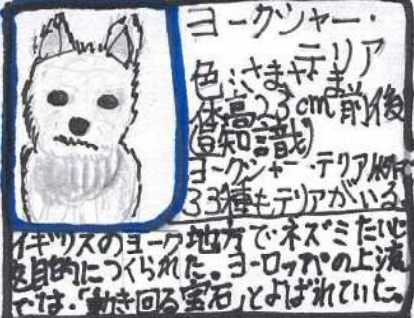 ヨークシャー・
テリア
色:さまざま
体高23cm前後
(豆知識)
ヨークシャー・テリア以外で
33種もテリアがいる。
イギリスのヨーク地方でネズミたいじ
を目的につくられた。ヨーロッパの上流
では「動き回る宝石」とよばれていた。